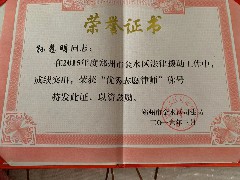 荣誉证书
同志:
在2015年度郑州市金水区法律援助工作中,
成绩突出,荣获“优秀志愿律师”称号
特发此证,以资鼓励。
郑州市金水区司法局
二〇一六年一月